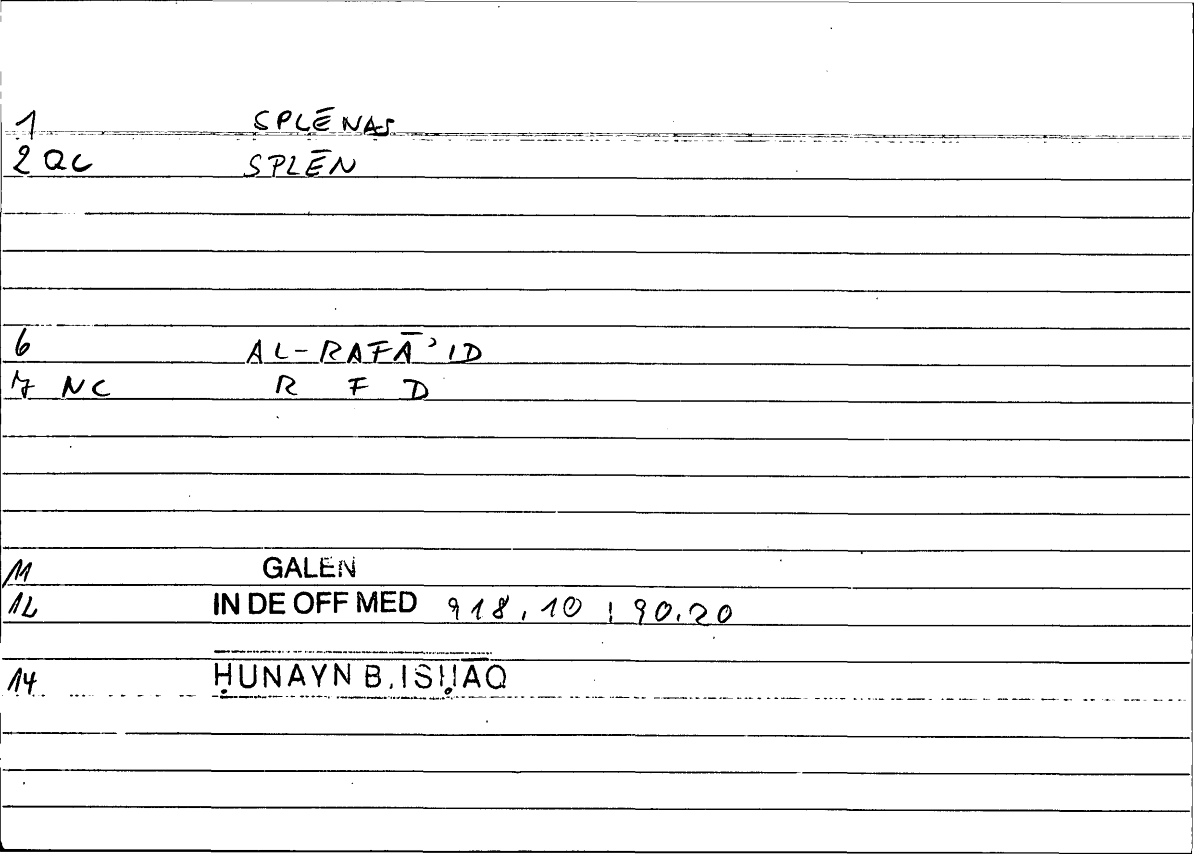 1 SPLĒNAS
2 QC SPLĒN
6 AL-RAFĀʾID
7 NC R F D
11 GALEN
12 IN DE OFF MED 918,10 ; 90.20
14 ḤUNAYN B. ISḤĀQ